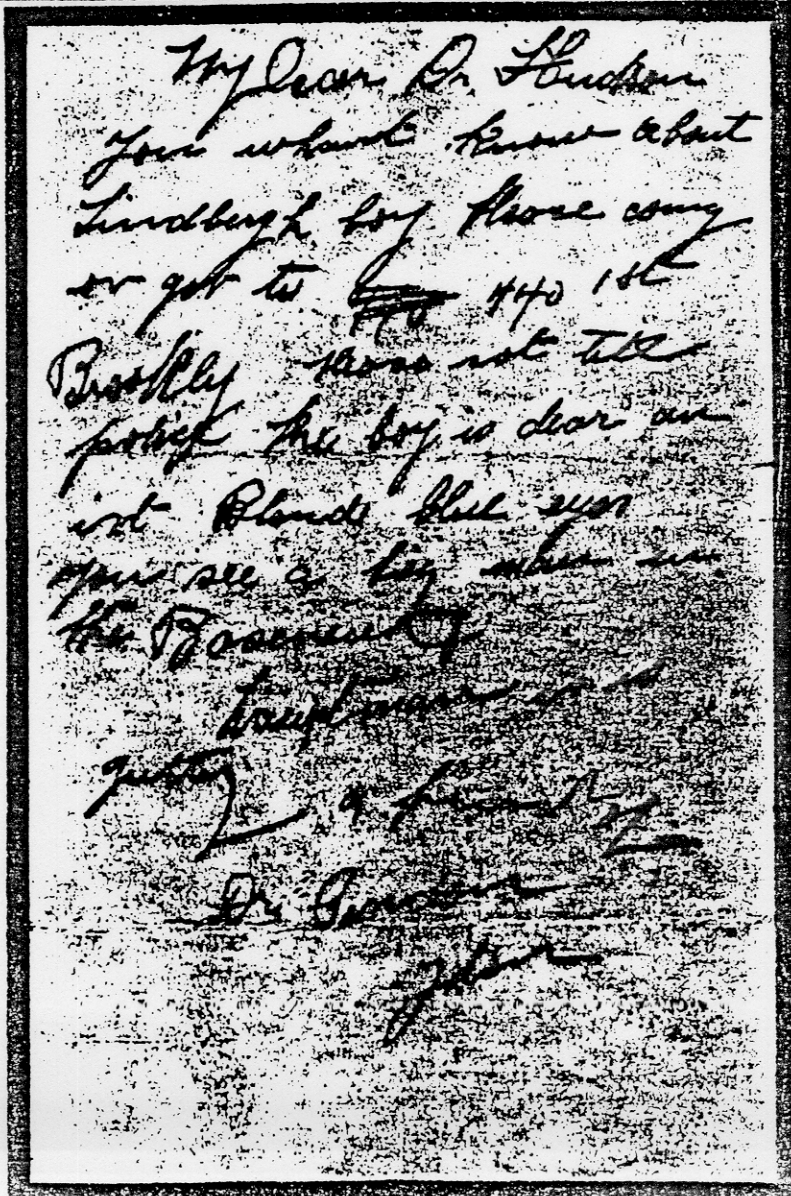 My Dear Dr. Hudson
you whant know about
Lindbergh boy Please comy
or got to 440 1st
Brooklly Please not tell
police the boy is dear an
int Blonde blue eyes
you see a boy man in
the Basement
Hauptmann is
a friend
Dr.